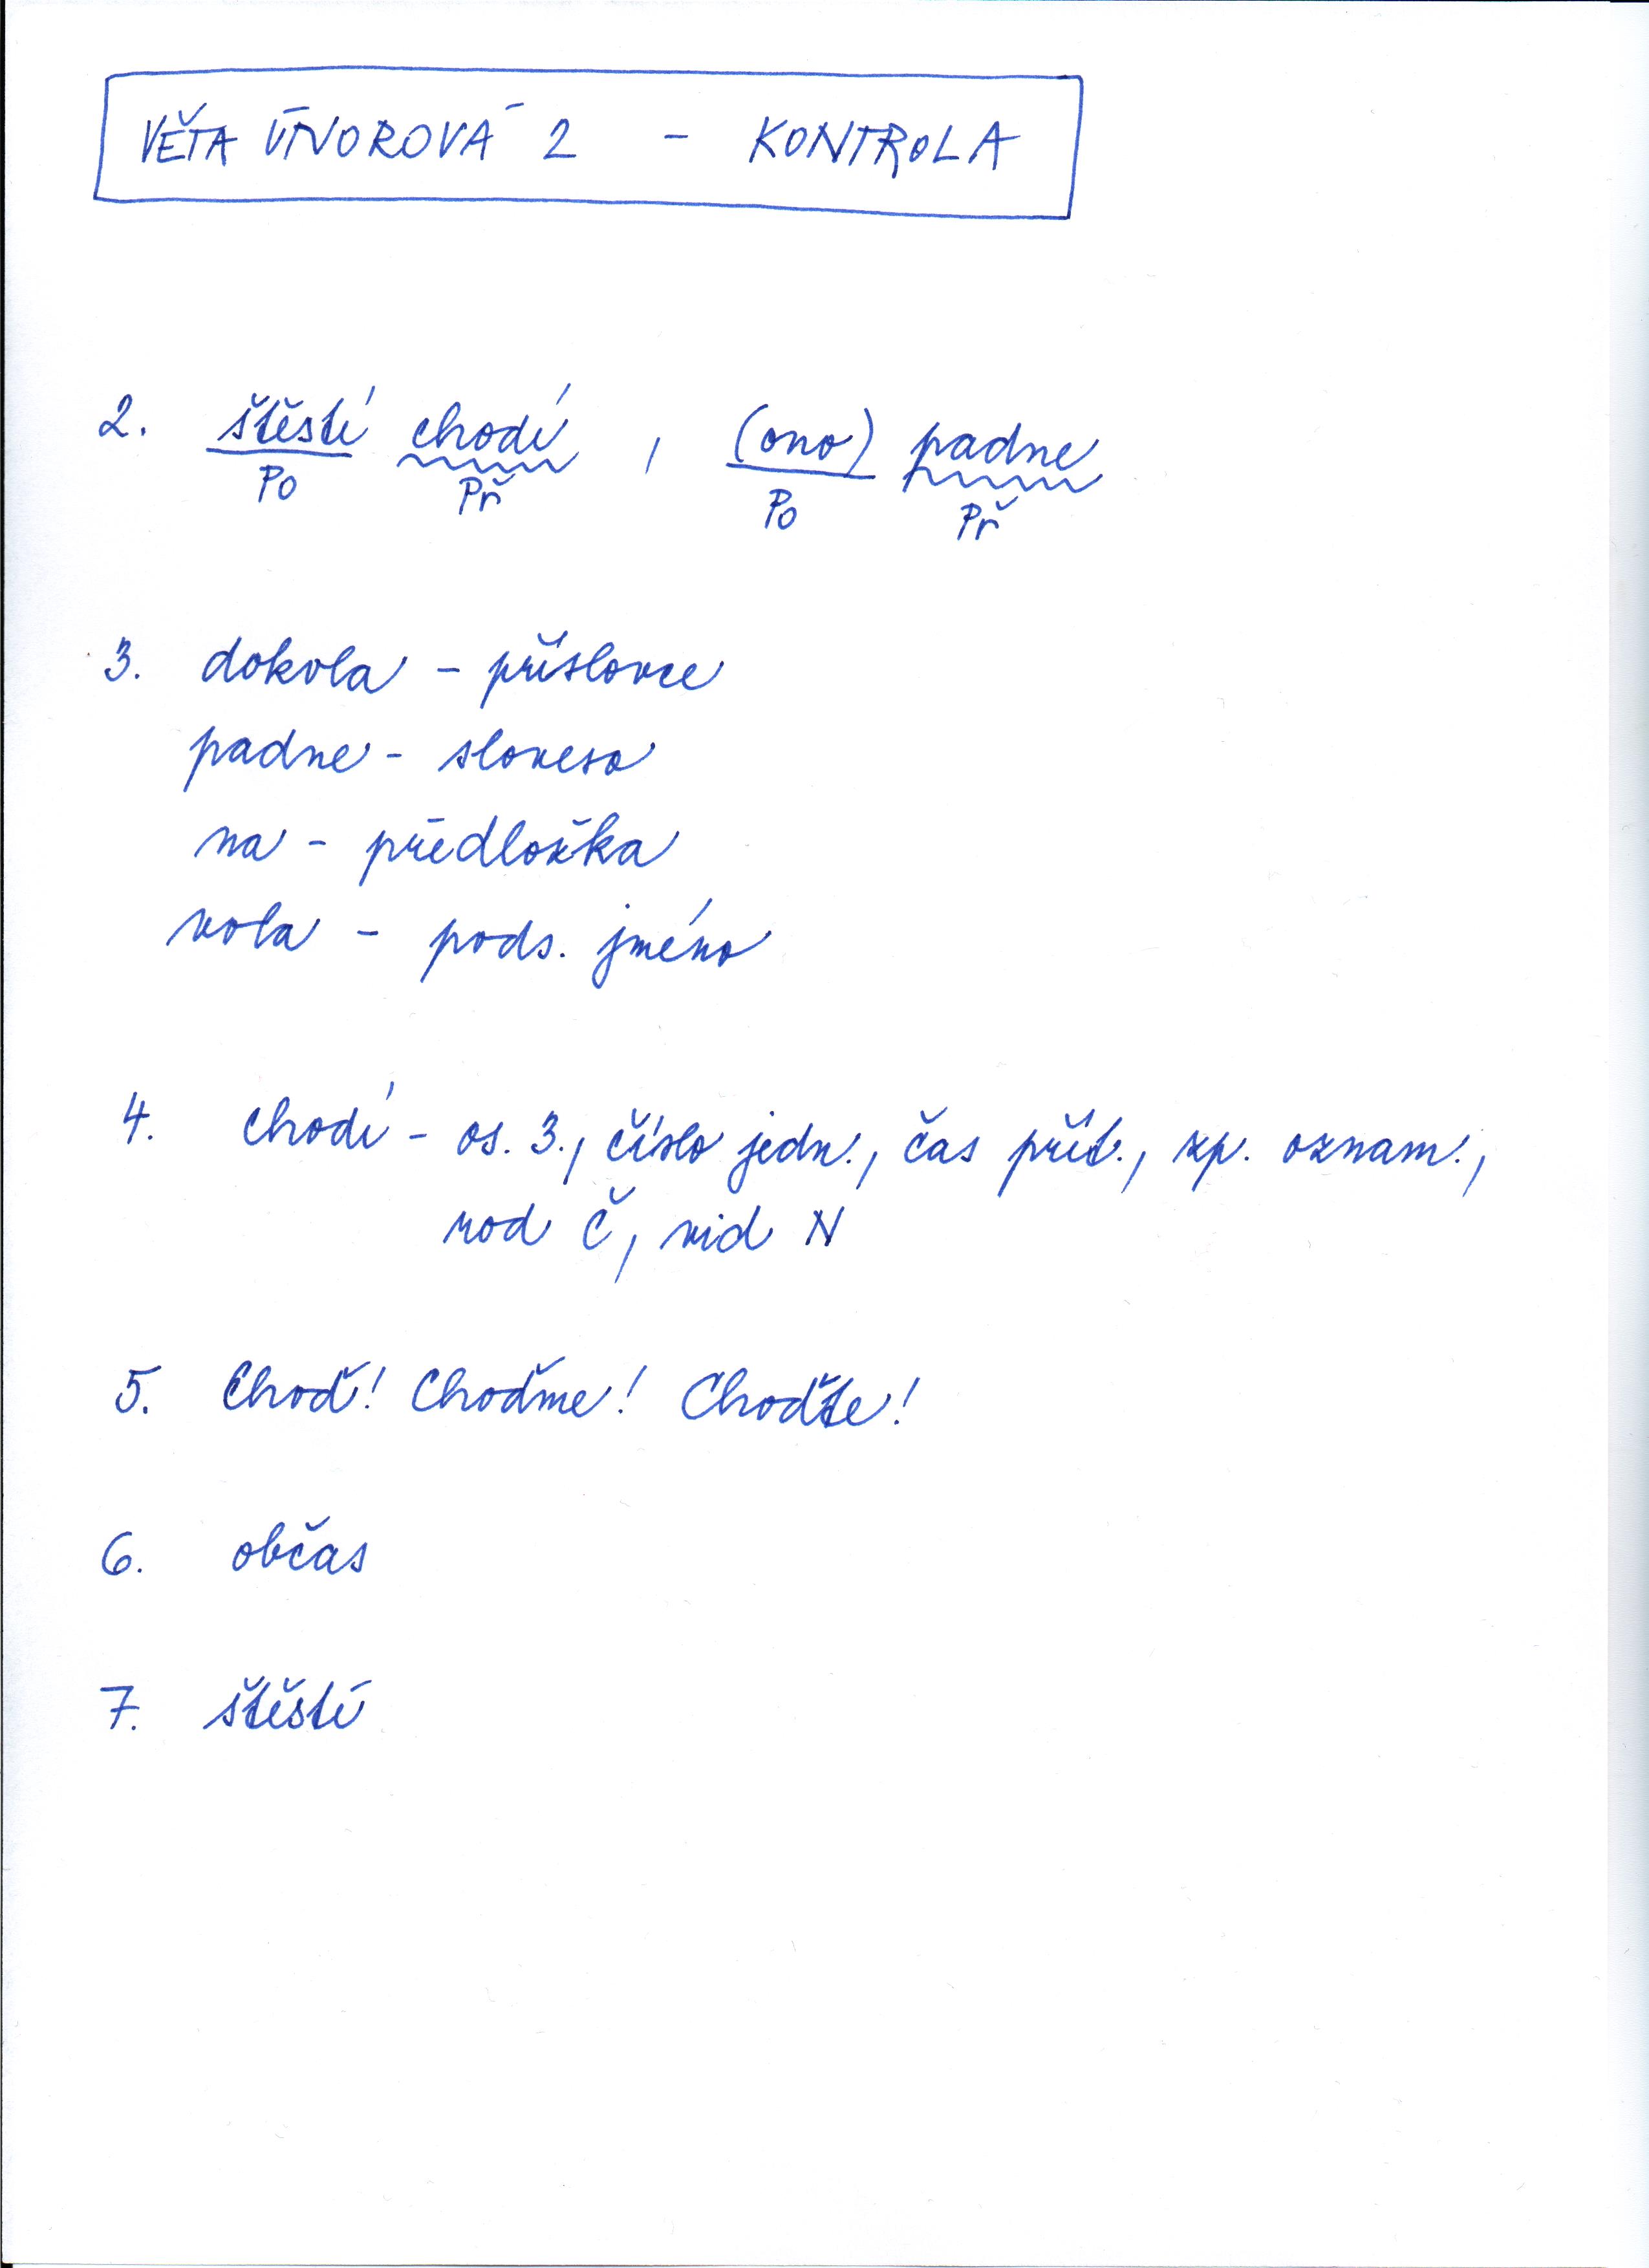 VĚTA ÚTVOROVÁ 2 - KONTROLA
2. štěstí chodí , (ono) padne
Po Př Po Př
3. dokola - příslovce
padne - sloveso
na - předložka
vola - pods. jméno
4. chodí - os. 3., číslo jedn., čas přít., zp. oznam.,
rod Č, vid N
5. Choď! Choďme! Choďte!
6. občas
7. štěstí